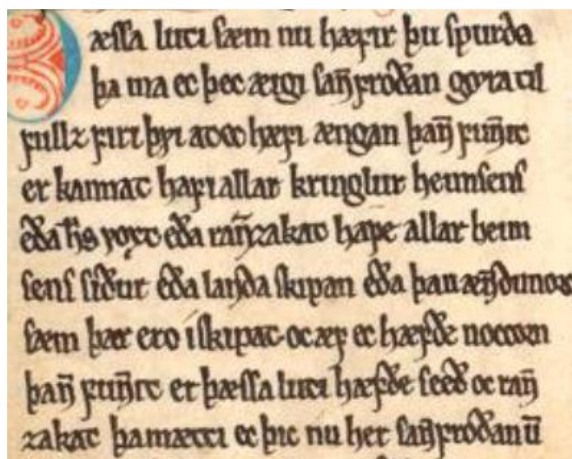 Þæſſa luti ſæm nu hæfir þu ſpurða
þa ma ec þec æigi ſan̄froðan gora til
fullz firi þvi at ec hæfi ængan þan̄ fun̄it
er kannat hafi allar kringlur heimſenſ
eða h̅s voxt eða ran̄zakat hafe allar heim
ſenſ ſiður eða landa ſkipan eða þau
ſæm þar ero i ſkipat· oc æf ec hæfðe noccorn
þan̄ fun̄it er þæſſa luti hæfðe ſeeð oc ran̄
zakat þa mætti ec þic nu her ſan̄froðan u̅